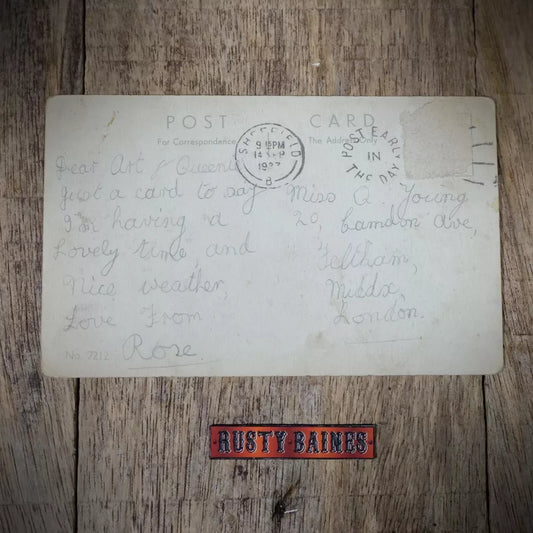 POST CARD
For Correspondence The Address Only
SHEFFIELD
9 15 PM
14 SEP
8
POST EARLY
IN
THE DAY
Dear Art & Queenie
Just a card to say
I'm having a
Lovely time and
Nice weather,
Love From
Rose.
No. 7212
Miss Q. Young
20, Camdon Ave,
Feltham,
Middx,
London.
RUSTY·BAINES